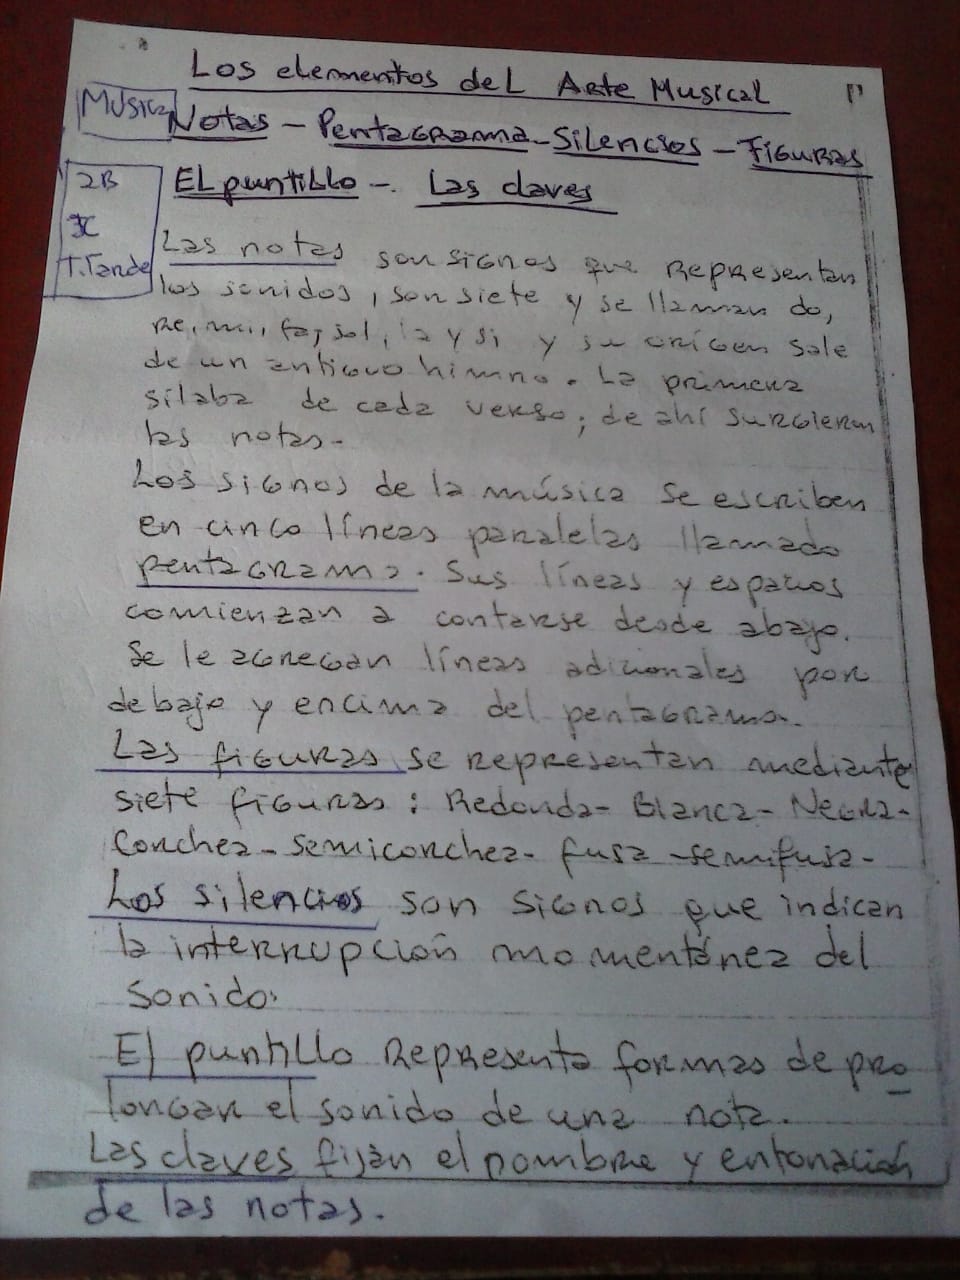 Los elementos del Arte Musical
Musica
Notas - Pentagrama - Silencios - Figuras
2B
El puntillo -. Las claves
T. Tarde
Las notas son signos que representan
los sonidos, son siete y se llaman do,
re, mi, fa, sol, la y si y su origen sale
de un antiguo himno. La primera
sílaba de cada verso; de ahí surgieron
las notas-
Los signos de la música se escriben
en cinco líneas paralelas llamado
pentagrama. Sus líneas y espacios
comienzan a contarse desde abajo.
Se le agregan líneas adicionales por
debajo y encima del pentagrama.
Las figuras se representan mediante
siete figuras: Redonda- Blanca- Negra-
Corchea- Semicorchea- fusa -semifusa-
Los silencios son signos que indican
la interrupción momentánea del
sonido.
El puntillo Representa formas de pro_
longar el sonido de una nota.
Las claves fijan el nombre y entonación
de las notas.